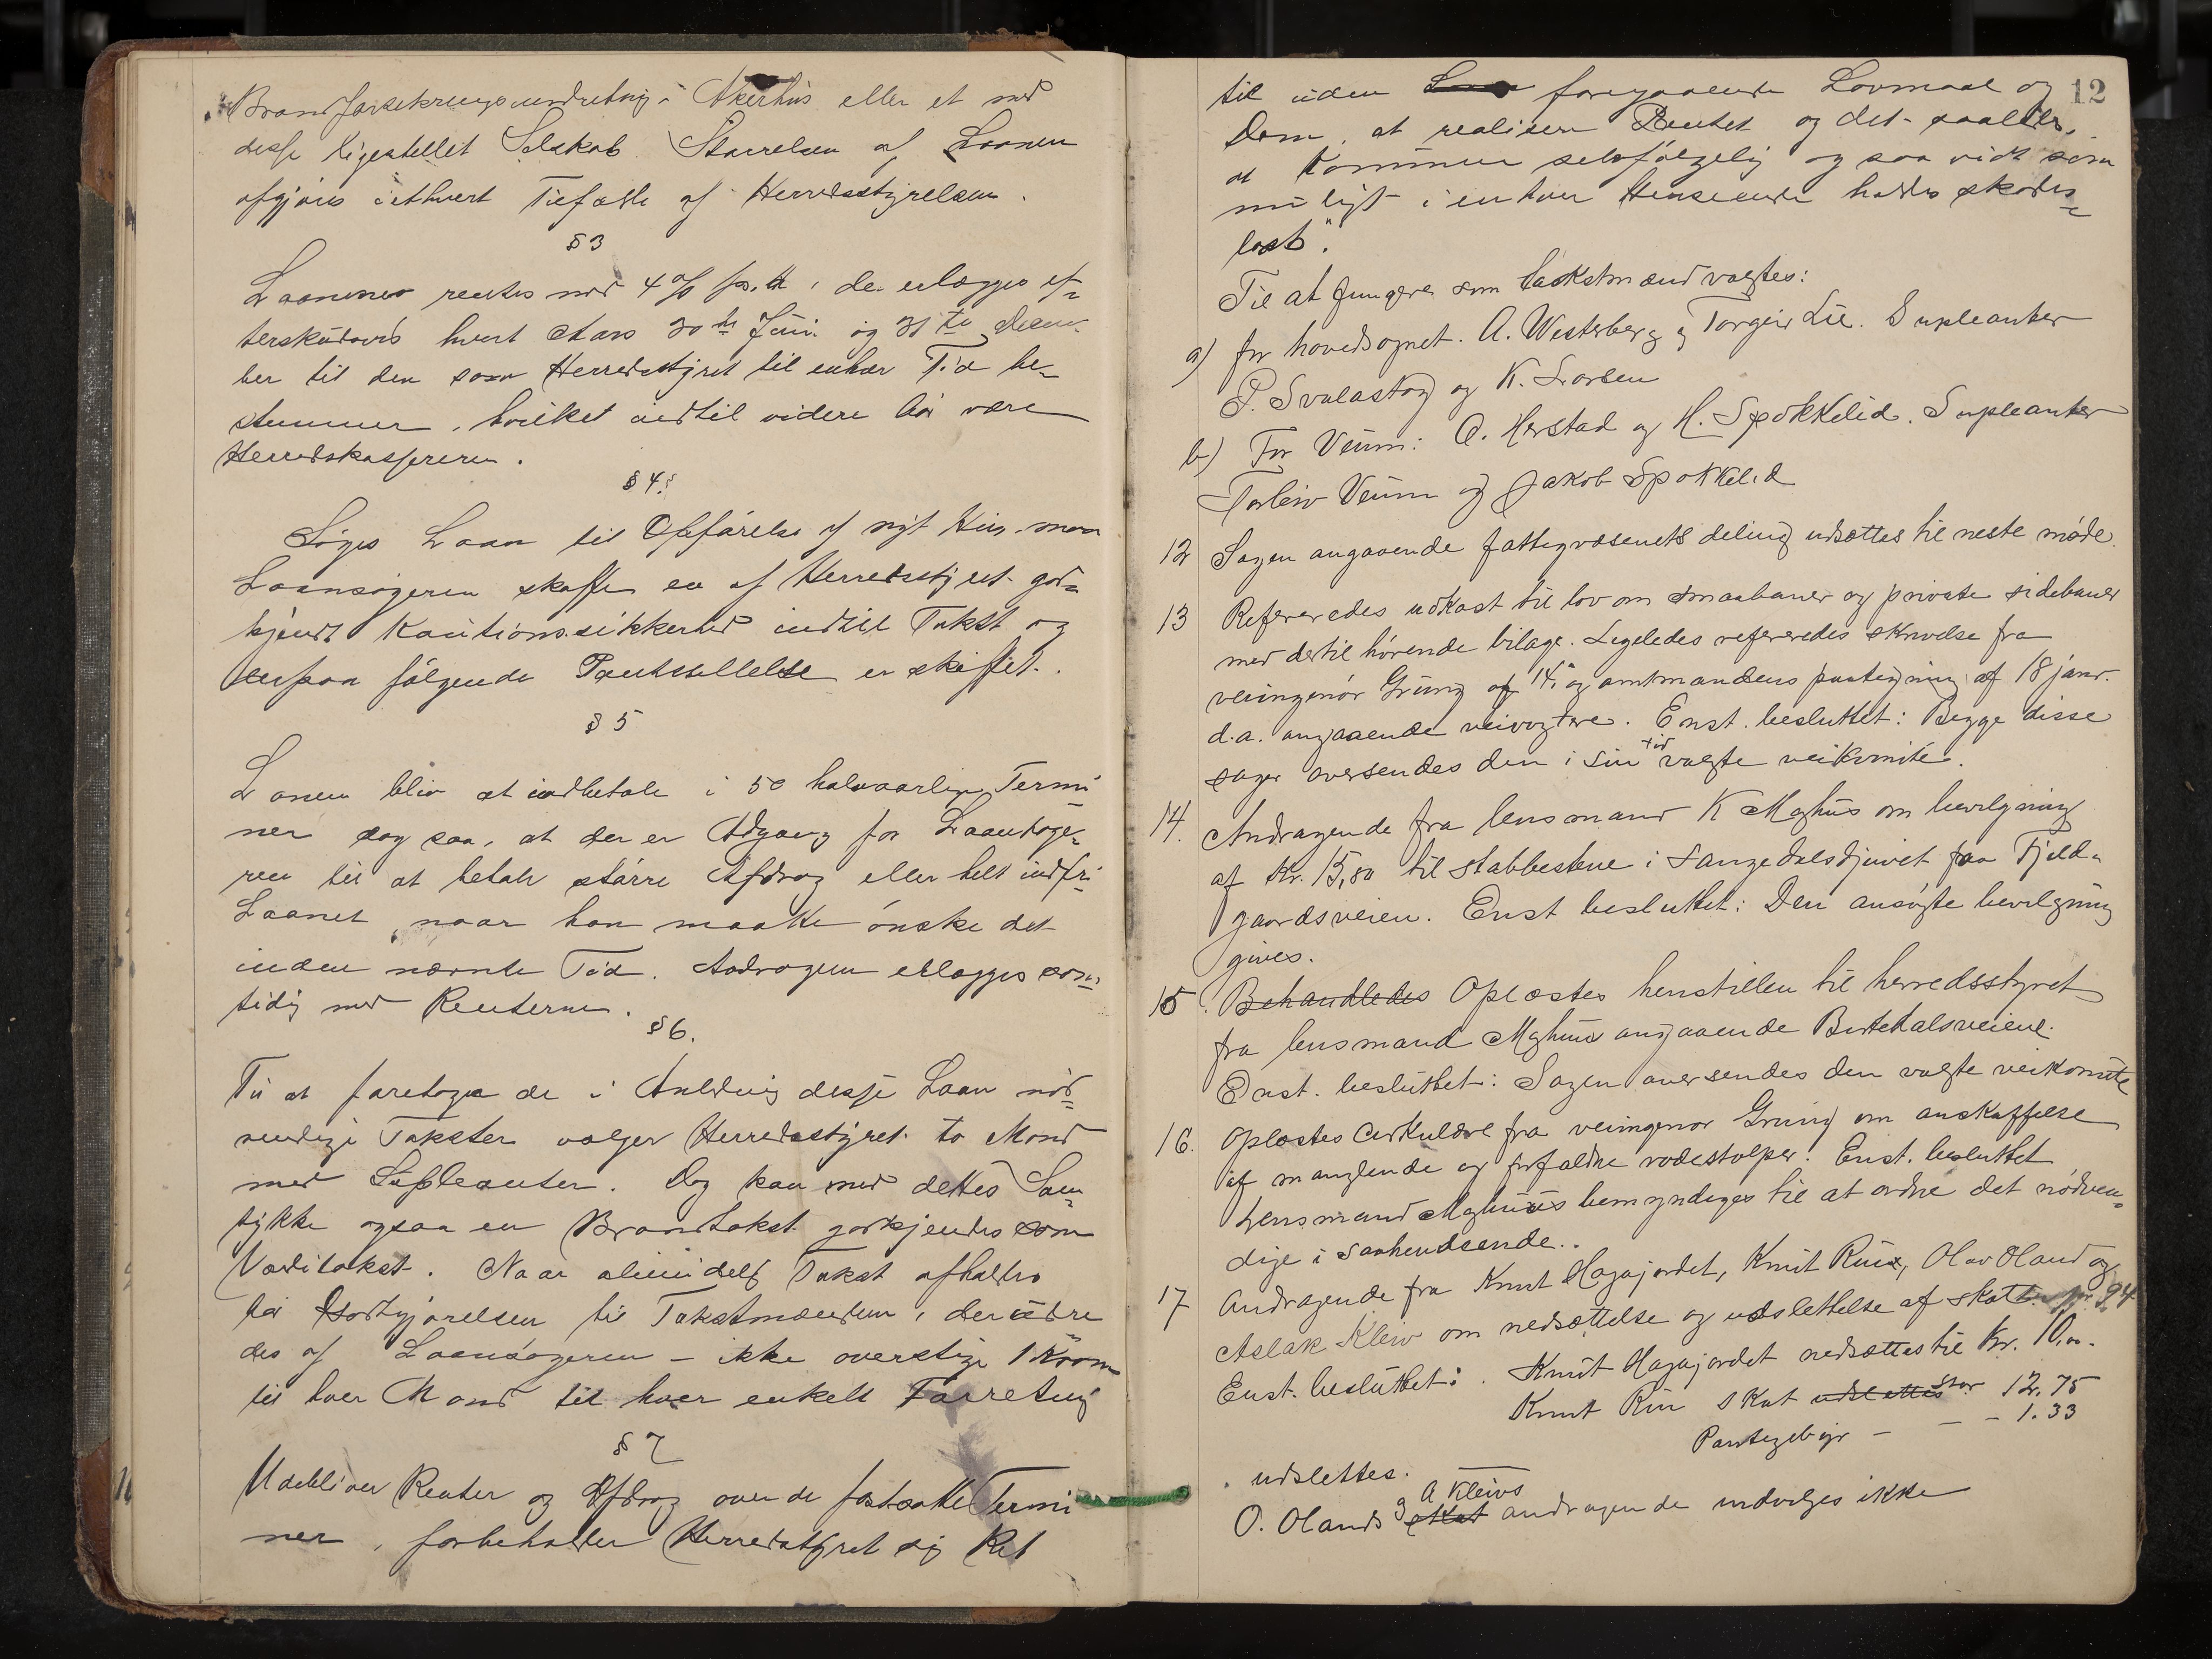 Brandforsikringsindretning i Akerhus eller et med
disse ligestillet Selskab. Størrelsen af Laanen
afgjøres i ethvert Tilfælde af Herredsstyrelsen.
§ 3
Laanene rentes med 4 % , de erlægges ef-
terskudsvis hvert Aars 30te Juni og 31te Decem-
ber til den som Herredsstyret til enhver Tid be-
stemmer, hvilket indtil videre bør være
Herredskassereren.
§ 4.
Søges Laan til Opførelse af nyt Hus maa
Laansøgeren skaffe en af Herredsstyret god-
kjendt Kautionssikkerhed indtil Takst og
derpaa følgende Pantstillelse er skaffet.
§ 5
Laanen bliv at indbetale i 50 halvaarlige Termi
ner dog saa, at der er Adgang for Laantage-
ren til at betale større Afdrag eller helt indfri
Laanet naar han maatte ønske det
inden nævnte Tid. Afdragene erlægges sam-
tidig med Renterne.
§ 6.
Til at foretage de i Anledning disse Laan nød-
vendige Takster vælger Herredsstyret to Mænd
med Supleanter. Dog kan med dettes Sam-
tykke ogsaa en Brandtakst godkjendes som
Værditakst. Naar almindelig Takst afholdes
bør Godtgjørelsen til Takstmændene, der udre
des af Laansøgeren – ikke overstige 1 Krone
til hver Mand til hver enkelt Forretning
§ 7
Udebliver Renter og Afdrag over de fastsatte Termi
ner, forbeholder Herredsstyret sig Ret
12
til uden foregaaende Lovmaal og
Dom, at realisere Pantet og det saaledes,
at Kommunen selvfølgelig og saa vidt som
muligt i enhver Henseende holdes skades-
løst".
Til at fungere som takstmænd valgtes:
a) for hovedsognet. A. Westerberg og Torgeir Lie. Supleanter
P. Svalastog og K. Larsen
b) For Veum: O. Herstad og H. Spokkelid. Supleanter
Torleiv Veum og Jakob Spokkelid
12 Sagen angaaende fattigvæsenets deling udsættes til neste møde.
13 Refereredes udkast til lov om smaabaner og private sidebaner
med dertil hørende bilage. Ligeledes refereredes skrivelse fra
veiingeniør Gruing af 14. og amtmandens paategning af 18 janr.
d.a. angaaende veivogtere. Enst. besluttet: Begge disse
sager oversendes den i sin tid valgte veikomite.
14. Andragende fra lensmand K Moghus om bevilgning
af Kr. 15,80 til stabbestene i Langedalsdjuvet paa Fjeld-
gaardsveien. Enst besluttet: Den ansøgte bevilgning
gives.
15. Behandledes Oplæstes henstillen til herredsstyret
fra lensmand Moghus angaaende Birtedalsveiene.
Enst. besluttet: Sagen oversendes den valgte veikomite
16. Oplæstes cirkulære fra veiingeniør Gruing om anskaffelse
af manglende og forfaldne rodestolper. Enst. besluttet
Lensmand Moghus bemyndiges til at ordne det nødven-
dige i saahenseende..
17 Andragende fra Knut Hagajordet, Knut Rui, Olav Oland og
Aslak Kleiv om nedsættelse og udslettelse af skatter pr 94
Enst. besluttet: Knut Hagajordet nedsættes til Kr. 10,00.
Knut Rui skat udslettes stor 12.75
Pantegebyr – – – 1.33
udslettes.
O. Olands og A Kleivs skat andragende indvilges ikke